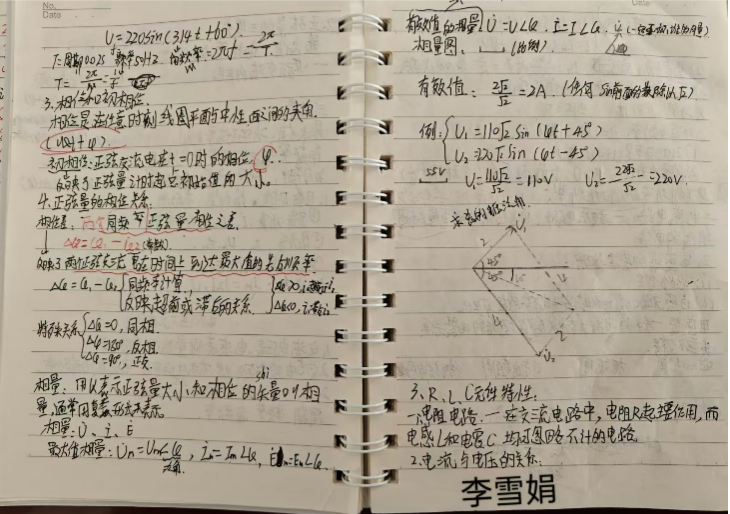 No.
Date
U=220sin(314t+60°)
T:周期0.02s 频率50Hz 角频率=2πf=2π/T
T=2π/ω=1/f
3.相位和初相位.
相位是在任意时刻,线圈平面与中性面之间的夹角.
(ωt+φ).
初相位:正弦交流电在t=0时的相位.φ.
反映了正弦量计时起点初始值的大小.
4.正弦量的相位关系.
相位差:两个同频率正弦量相位之差.
Δφ=φ₁-φ₂(常数)
反映了两个正弦交流电在时间上到达最大值的先后顺序
Δφ=φ₁-φ₂ 同频率计算.
反映超前或滞后的关系
Δφ>0,
Δφ<0,
特殊关系 Δφ=0,同相.
Δφ=180°,反相.
Δφ=90°,正交
相量:用以表示正弦量大小和相位的矢量叫相
量,通常用复数形式来表示.
相量:U̇、İ、Ė
最大值相量:U̇m=Um∠φ, İm=Im∠φ, Ėm=Em∠φ.
Date
有效值的相量U̇=U∠φ. İ=I∠φ.
相量图.
有效值:2√2/√2=2A.
例: U₁=110√2 sin(ωt+45°)
U₂=220√2 sin(ωt-45°)
55V U₁=110√2/√2=110V U₂=220√2/√2=220V.
2
U̇₁
45°
45°
4
4
2
U̇₂
3、R、L、C元件特性.
一.电阻电路.一在交流电路中,电阻R起主要作用,而
电感L和电容C均可忽略不计的电路.
2.电流与电压的关系:
李雪娟